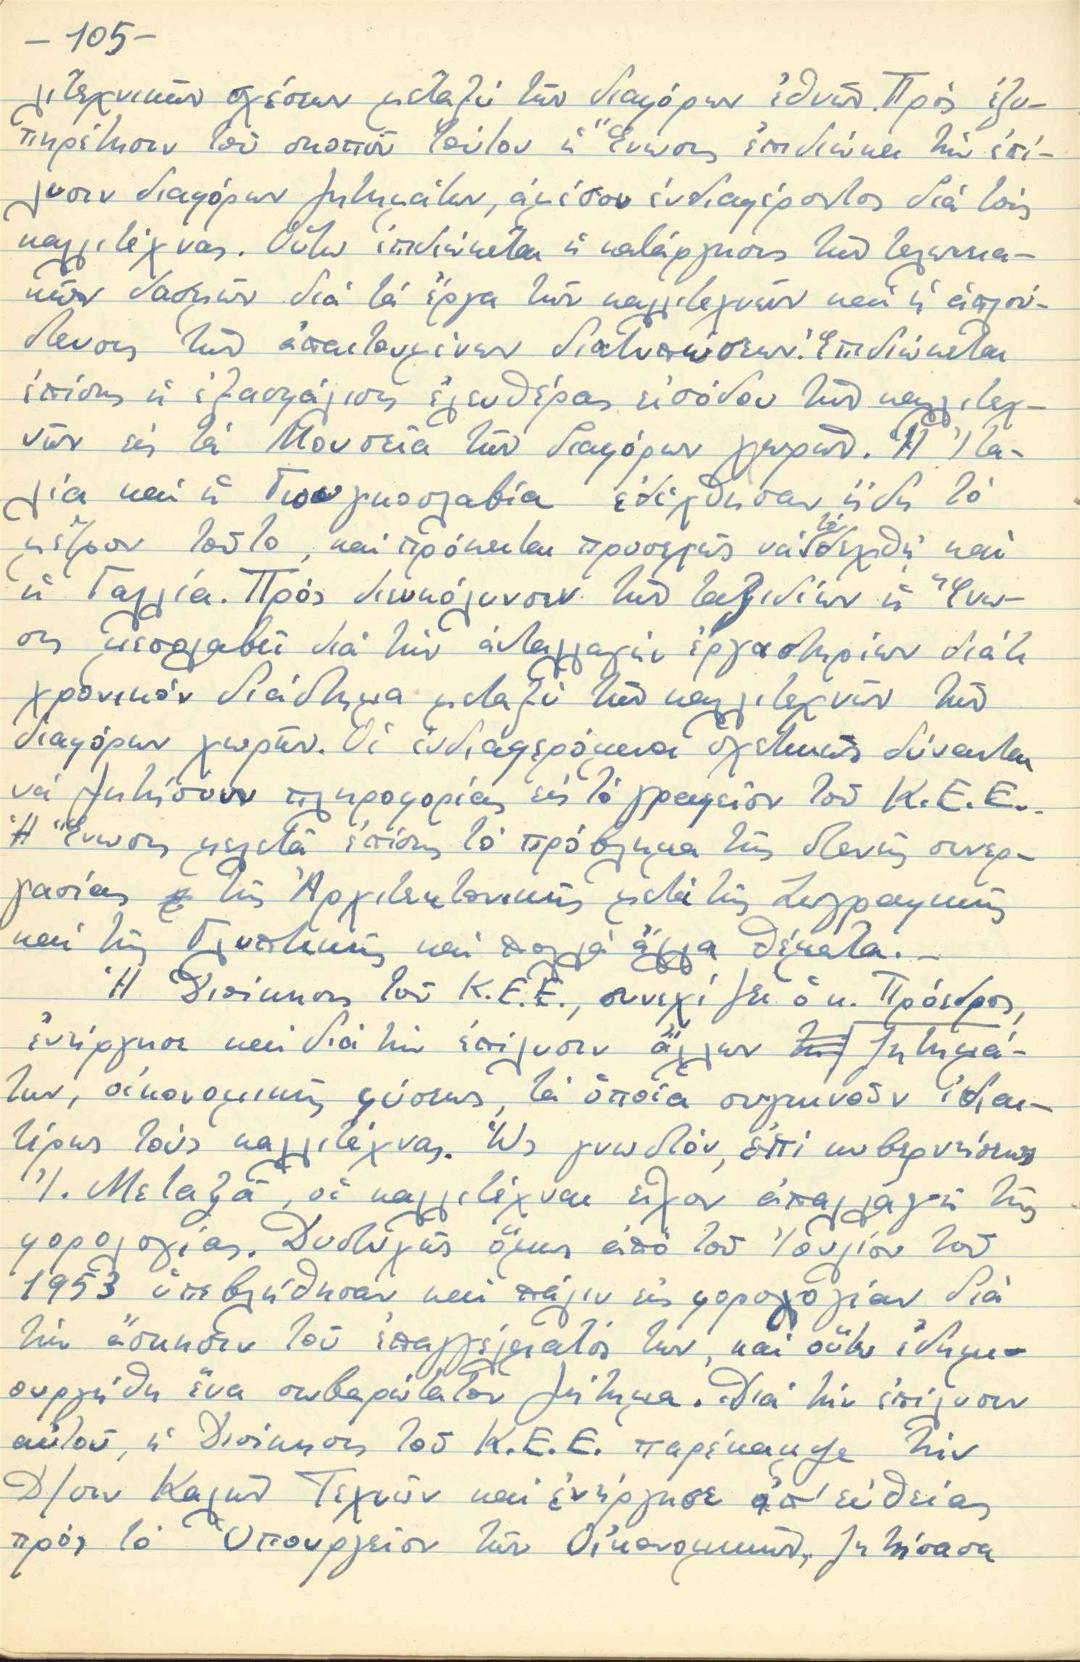 – 105 –
λιτεχνικῶν σχέσεων μεταξύ τῶν διαφόρων ἐθνῶν. Πρός ἐξυ-
πηρέτησιν τοῦ σκοποῦ τούτου ἡ Ἕνωσις ἐπιδιώκει τήν ἐπί-
λυσιν διαφόρων ζητημάτων, ἀμέσου ἐνδιαφέροντος διά τούς
καλλιτέχνας. Οὕτω ἐπιδιώκεται ἡ κατάργησις τῶν τελωνεια-
κῶν δασμῶν διά τά ἔργα τῶν καλλιτεχνῶν καί ἡ ἁπλού-
στευσις τῶν ἀπαιτουμένων διατυπώσεων. Ἐπιδιώκεται
ἐπίσης ἡ ἐξασφάλισις ἐλευθέρας εἰσόδου τῶν καλλιτεχ-
νῶν εἰς τά Μουσεῖα τῶν διαφόρων χωρῶν. Ἡ Ἰτα-
λία καί ἡ Γιουγκοσλαβία ἐδέχθησαν ἤδη τό
μέτρον τοῦτο, καί πρόκειται προσεχῶς νά τό δεχθῇ καί
ἡ Γαλλία. Πρός διευκόλυνσιν τῶν ταξιδίων ἡ Ἕνω-
σις μεσολαβεῖ διά τήν ἀνταλλαγήν ἐργαστηρίων διά τι
χρονικόν διάστημα μεταξύ τῶν καλλιτεχνῶν τῶν
διαφόρων χωρῶν. Οἱ ἐνδιαφερόμενοι σχετικῶς δύνανται
νά ζητήσουν πληροφορίας εἰς τό γραφεῖον τοῦ Κ.Ε.Ε.–
Ἡ Ἕνωσις μελετᾶ ἐπίσης τό πρόβλημα τῆς στενῆς συνερ-
γασίας τῆς Ἀρχιτεκτονικῆς μετά τῆς Ζωγραφικῆς
καί τῆς Γλυπτικῆς καί πολλά ἄλλα θέματα.–
Ἡ Διοίκησις τοῦ Κ.Ε.Ε., συνεχίζει ὁ κ. Πρόεδρος,
ἐνήργησε καί διά τήν ἐπίλυσιν ἄλλων ζητημά-
των, οἰκονομικῆς φύσεως, τά ὁποῖα συγκινοῦν ἰδιαι-
τέρως τούς καλλιτέχνας. Ὡς γνωστόν, ἐπί κυβερνήσεως
Ἰ. Μεταξᾶ, οἱ καλλιτέχναι εἶχον ἀπαλλαγῆ τῆς
φορολογίας. Δυστυχῶς ὅμως ἀπό τοῦ Ἰουλίου τοῦ
1953 ὑπεβλήθησαν καί πάλιν εἰς φορολογίαν διά
τήν ἄσκησιν τοῦ ἐπαγγέλματός των, καί οὕτω ἐδημι-
ουργήθη ἕνα σοβαρώτατον ζήτημα. Διά τήν ἐπίλυσιν
αὐτοῦ, ἡ Διοίκησις τοῦ Κ.Ε.Ε. παρέκαμψε τήν
Δ/σιν Καλῶν Τεχνῶν καί ἐνήργησε ἀπ' εὐθείας
πρός τό Ὑπουργεῖον τῶν Οἰκονομικῶν, ζητήσασα